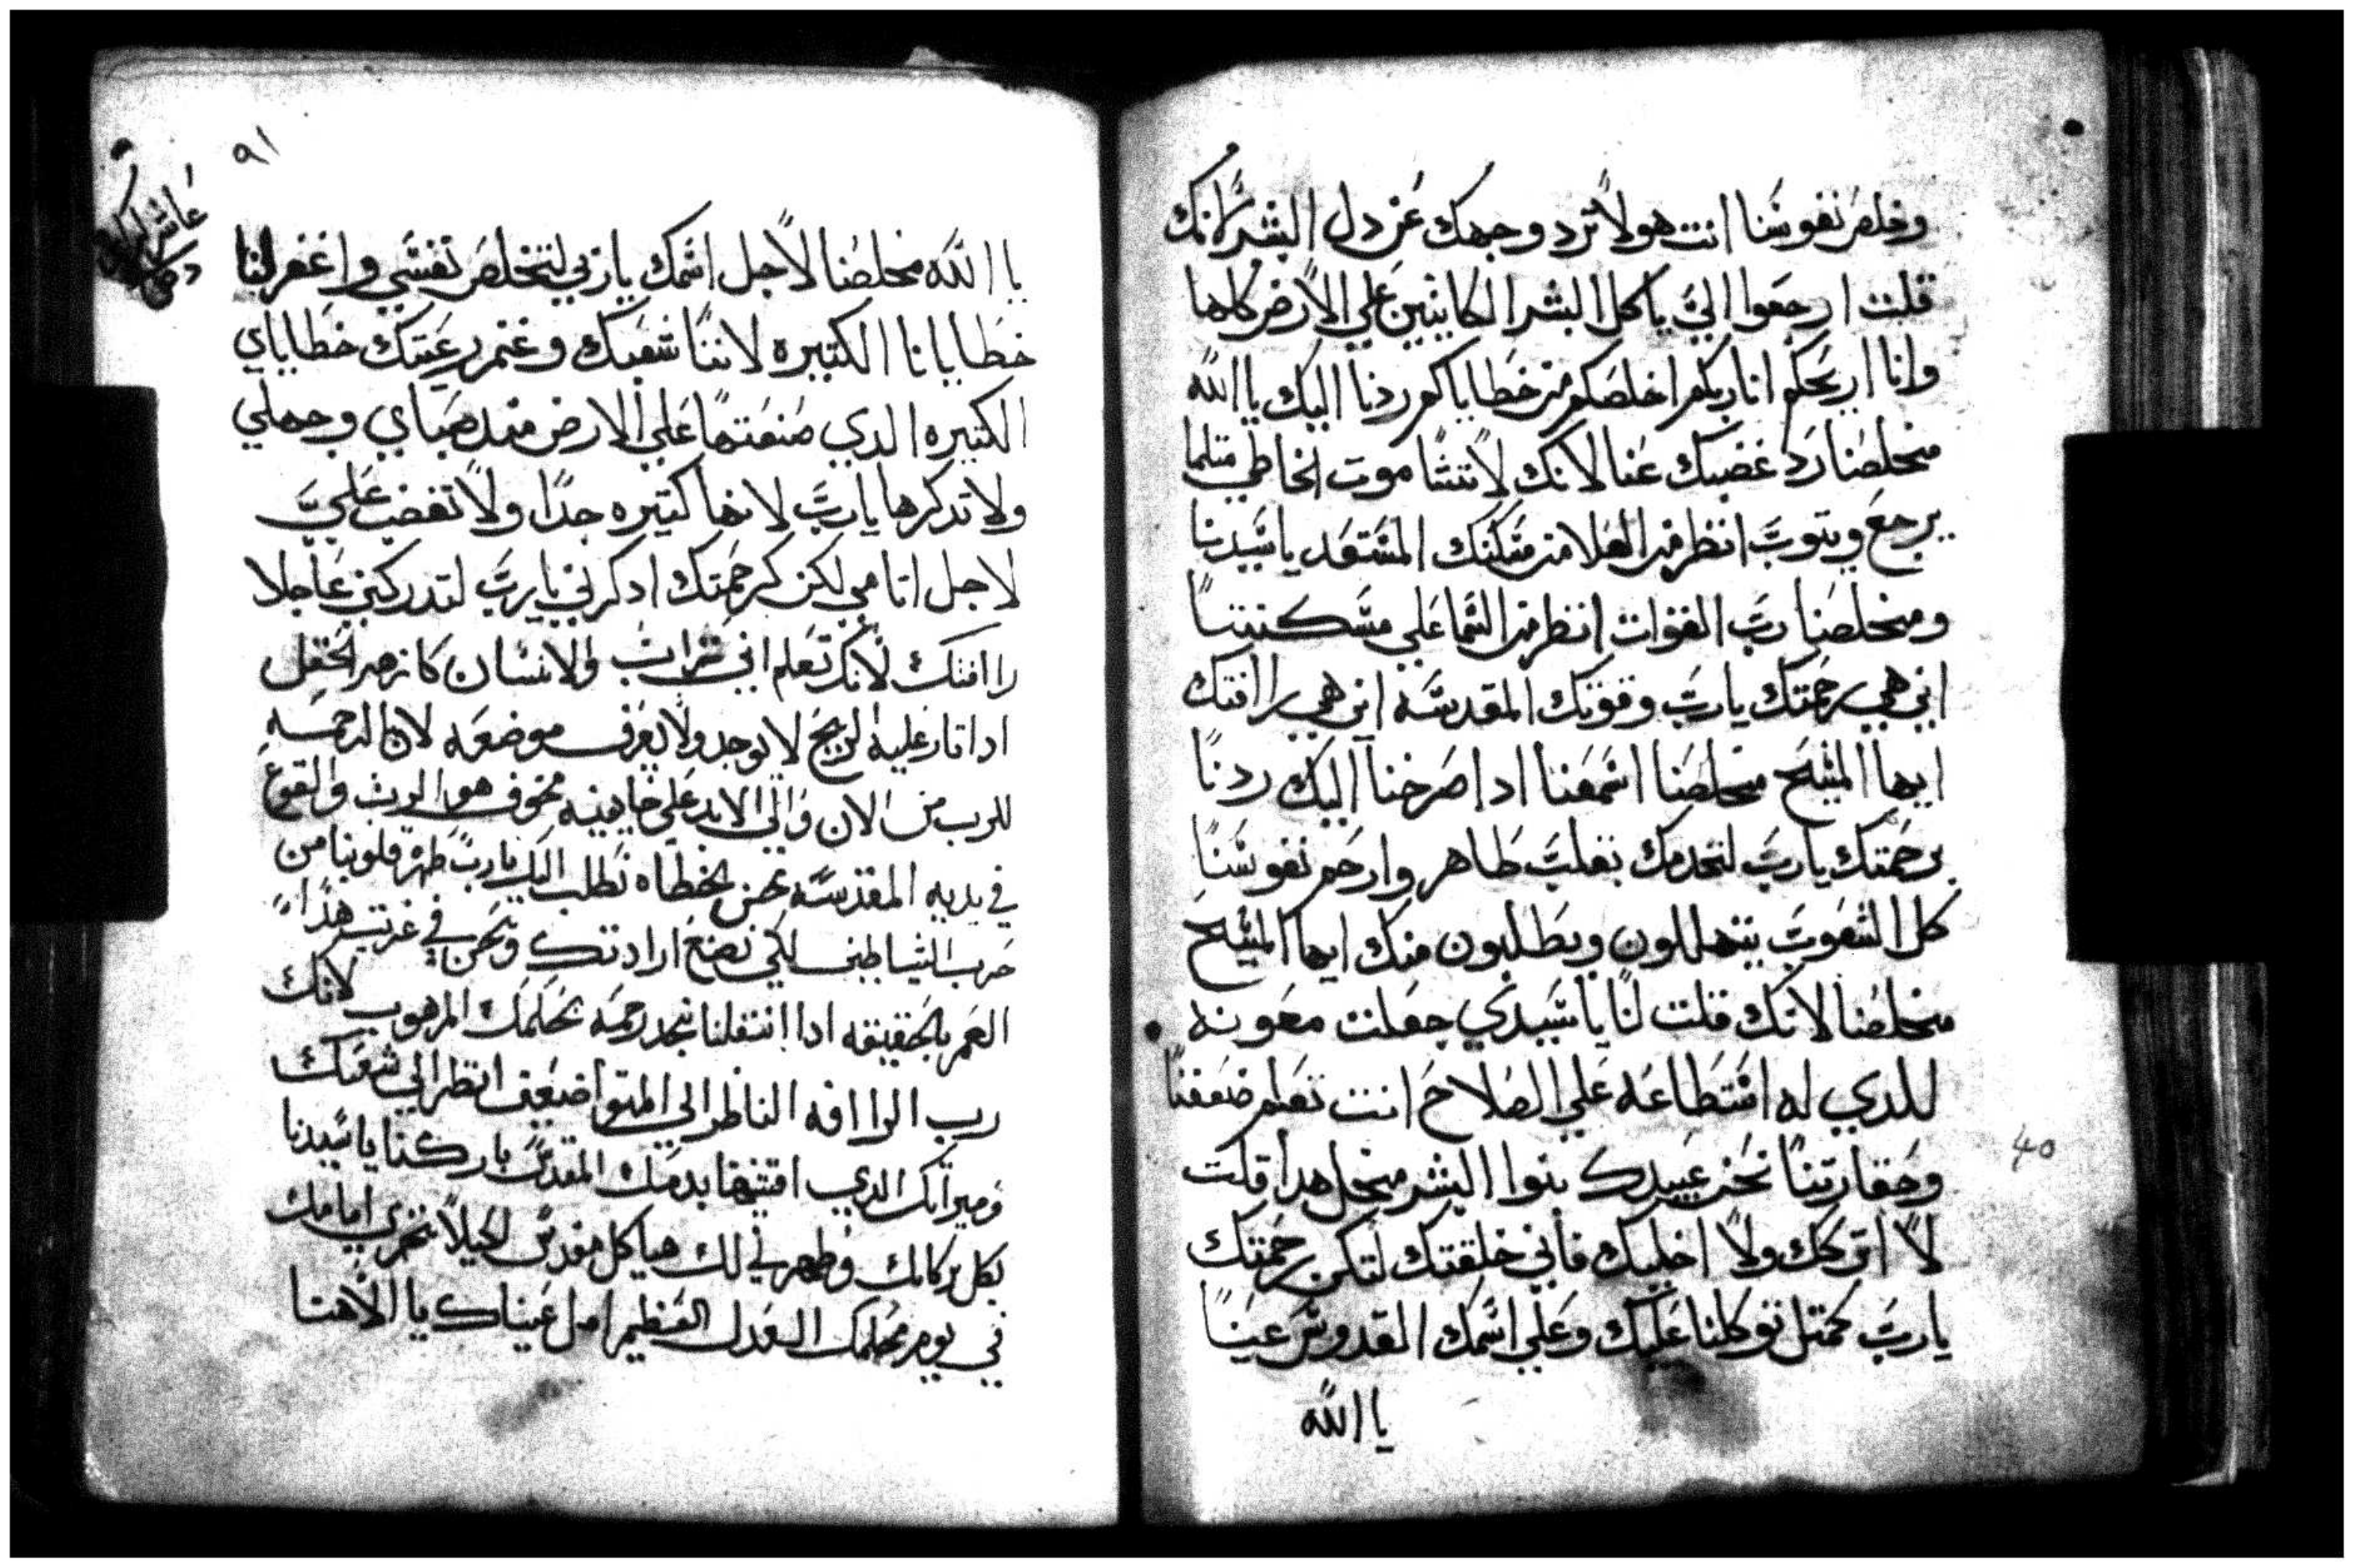 وخلص نفوسنا انت هو لا ترد وجهك عن دل البشر لانك
قلت ارجعوا اليَّ يا كل البشر الكاينين علي الارض كلها
وانا اريحكم انا ربكم اخلصكم من خطاياكم ردنا اليك يا الله
مخلصنا رد غضبك عنا لانك لا تشا موت الخاطي مثلما
يرجع ويتوب انظر من العلا من مسكنك المستعد يا سيدنا
ومخلصنا رب القوات انظر من السما علي مسكنتنا
اين هي رحمتك يا رب وقوتك المقدسه اين هي راافتك
ايها المسيح مخلصنا اسمعنا ادا صرخنا اليك ردنا
برحمتك يا رب لنخدمك بقلب طاهر وارحم نفوسنا
كل الشعوب يتهللون ويطلبون منك ايها المسيح
مخلصنا لانك قلت لنا يا سيدي جعلت معونه
للدي له استطاعه علي الصلاح انت تعلم ضعفنا
وحقارتنا نحن عبيدك بنوا البشر من اجل هدا قلت
لا اتركك ولا اخليك فاني خلقتك لتكن رحمتك
يا رب كمتل توكلنا عليك وعلي اسمك القدوس عينا
يا الله
40
٩١
يا الله مخلصنا لاجل اسمك يا ربي لتخلص نفسي واغفر لنا
خطايانا الكتيره لاننا شعبك وغنم رعيتك خطاياي
الكتيره الدي صنعتها علي الارض مند صباي وجهلي
ولا تدكرها يا رب لانها كتيره جدا ولا تغضب عليَّ
لاجل اتامي لكن كرحمتك ادكرني يا رب لتدركني عاجلا
راافتك لانك تعلم اني تراب والانسان كازهر الحقل
ادا تار عليه الريح لا يوجد ولا يعرف موضعه لان الرحمه
للرب من الان والي الابد علي خايفينه مخوف هو الرب والقوي
في يديه المقدسه نحن الخطاه نطلب اليك يا رب طهر قلوبنا من
حرب الشياطين لكي نصنع ارادتك ونحن في غربت هدا
العمر بالحقيقه ادا انتقلنا نجد رحمه بحكمك المرهوب لانك
رب الراافه الناظر الي المتواضعين انظر الي شعبك
وميراتك الدي اقتنيتها بدمك المقدس باركنا يا سيدنا
بكل بركاتك وطهرني لك هيا كل مقدس لكيلا نخزي امامك
في يوم حكمك العدل العظيم امل عيناك يا الاهنا